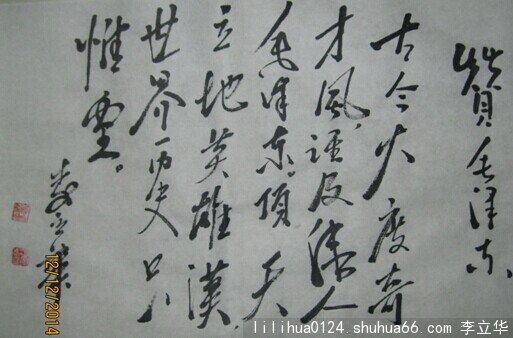 贊毛泽东
古今大度奇
才风，谁及人
毛泽东。顶天
立地英雄汉
世界历史只
惟
立华
12/12/2014
lilihua0124.shuhua66.com 李立华